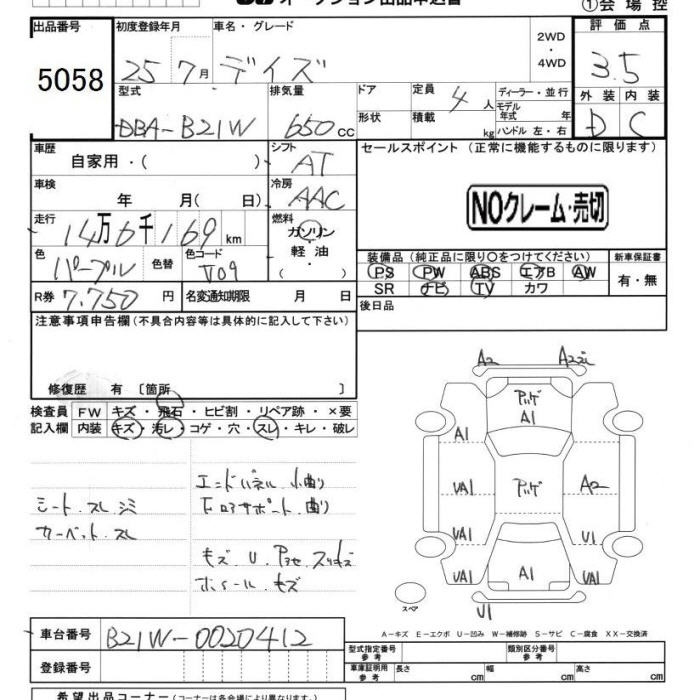 ①会場控
出品番号 初度登録年月 車名・グレード 2WD・4WD 評価点
5058 25 7月 デイズ 3.5
型式 排気量 ドア 定員 4人 ディーラー・並行 外装 内装
DBA-B21W 650cc 形状 積載 kg モデル年式 年 ハンドル 左・右 D C
車歴 自家用・( ) シフト AT セールスポイント (正常に機能するものに限ります)
車検 年 月( 日) 冷房 AAC
NOクレーム・売切
走行 14万6千169km 燃料 ガソリン・軽油・( )
色 パープル 色替 色コード V09 装備品 (純正品に限り○をつけてください) 新車保証書
PS PW ABS エアB AW 有・無
SR ナビ TV カワ
R券 7.750円 名変通知期限 月 日 後日品
注意事項申告欄 (不具合内容等は具体的に記入して下さい)
修復歴 有 [箇所 ]
検査員 FW キズ・飛石・ヒビ割・リペア跡・×要
記入欄 内装 キズ・汚レ・コゲ・穴・スレ・キレ・破レ
エンドパネル 小曲り
シート スレ シミ
カーペット スレ
キズ.U.
キズ
A2
A1
A1
UA1
A2
UA1
U1
UA1
A1
UA1
スペア
U1
A-キズ E-エクボ U-凹み W-補修跡 S-サビ C-腐食 XX-交換済
車台番号 B21W-0020412
型式指定番号 参考 類別区分番号 参考
登録番号 車庫証明用 参考 長さ cm 幅 cm 高さ cm
希望出品コーナー (コーナーは各会場により異なります。)